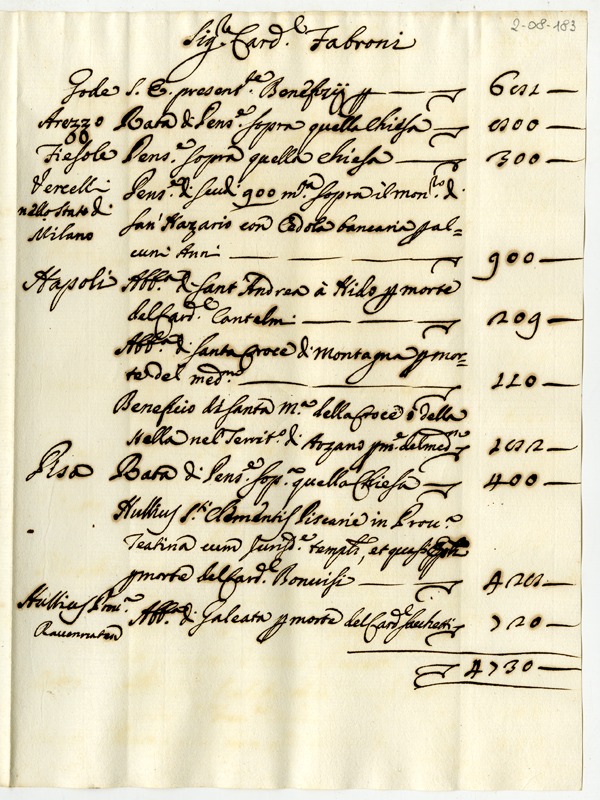 2-08-183
Sig.r Card.l Fabroni
Gode S. E. present.te Benefizij p
Arezzo Rata di Pens.e sopra quella Chiesa
Fiesole Pens.e sopra quella chiesa 300
Vercelli Pens.e di scudi 900 m.ta sopra il mon.ro di
nello Stato di San Nazario con Cedola bancaria p al=
Milano cuni Anni 900
Napoli Abb.a di Sant Andrea à Nido p morte
del Card.l Cantelmi 209
Abb.a di Santa Croce di Montagna p mor=
te del med.mo 110
Beneficio di Santa M.a della Croce ò della
stella nel Territ.o di p m.e del med.o
Pisa Rata di Pens.e sop.a quella Chiesa 400
Nullius S.ti Clementis Piscarie in Prou.a
Teatina cum Jurisd.e templi, et quasi
p morte del Card.l Bonuisi
Nullius Prou.a Abb.a di Galeata p morte del Card.l Sacchetti 720
Rauennaten
4730